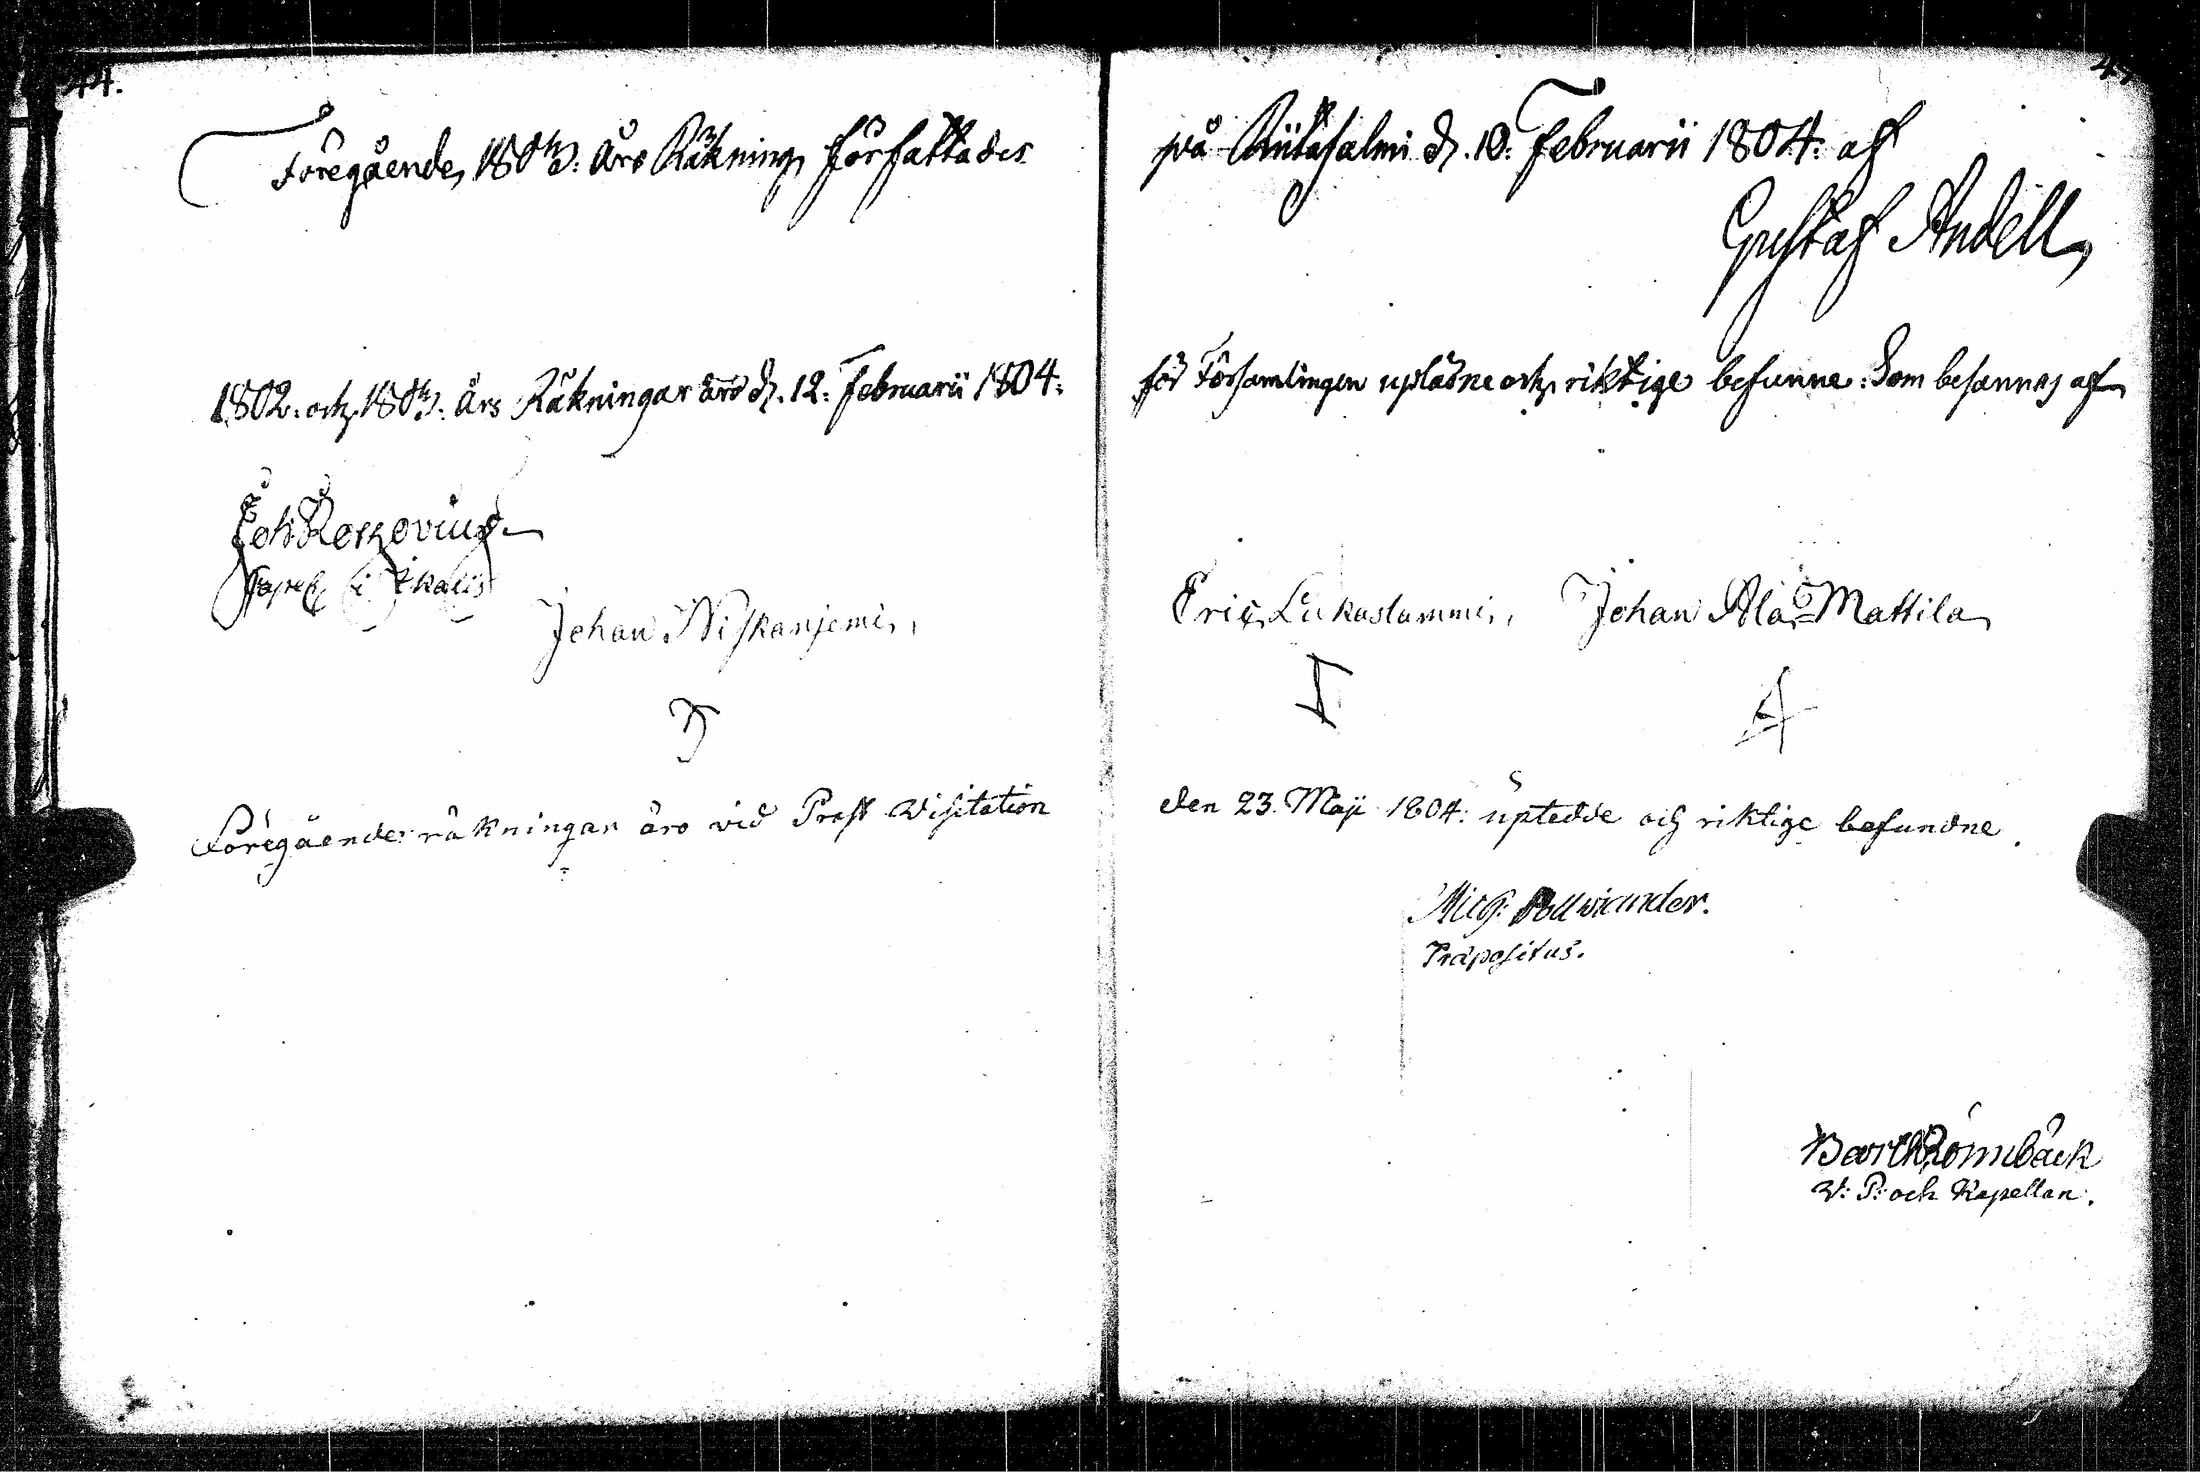 44.
Föregående 1803: Års Räkning författades
1802: och 1803: Års Räkningar äro d. 12: Februarii 1804:
Joh: Roschovius
Capell: i Ikalis
Johan Niskanjemi,
Föregående räkningar äro vid Prost Visitation
på Riitasalmi d. 10: Februarii 1804: af
Gustaf Andell
för Församlingen upläsne och riktige befunne: Som besannas af
Eric Lukaslammi, Johan Ala=Mattila
den 23. Maji 1804: uptedde och riktige befundne.
Mich: Pollviander.
Præpositus.
Barth Rönnbäck
V: P: och Kapellan.